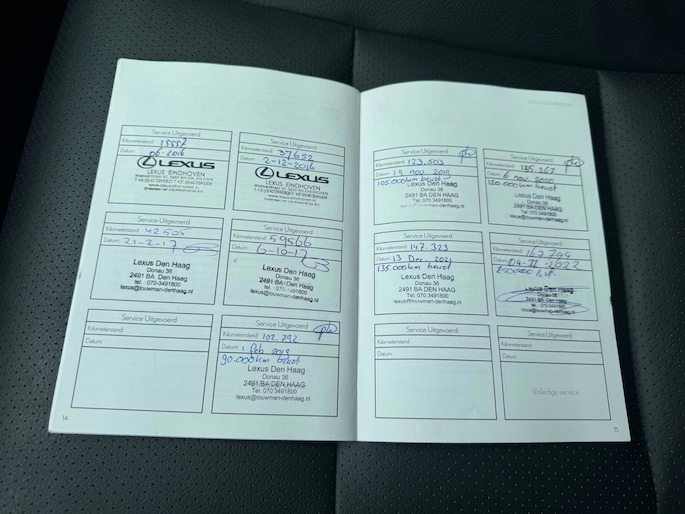 Service Uitgevoerd
Kilometerstand: 15557
Datum: 06-2016
LEXUS
LEXUS EINDHOVEN
Service Uitgevoerd
Kilometerstand: 37652
Datum: 2-12-2016
LEXUS
LEXUS EINDHOVEN
Service Uitgevoerd
Kilometerstand: 42505
Datum: 21-2-17
Lexus Den Haag
Donau 36
2491 BA Den Haag
tel.: 070 3491800
lexus@louwman-denhaag.nl
Service Uitgevoerd
Kilometerstand: 59566
Datum: 6-10-17
Lexus Den Haag
Donau 36
2491 BA Den Haag
tel.: 070 3491800
lexus@louwman-denhaag.nl
Service Uitgevoerd
Kilometerstand:
Datum:
Service Uitgevoerd
Kilometerstand: 102.792
Datum: 1 feb 2019
90.000km beurt
Lexus Den Haag
Donau 36
2491 BA DEN HAAG
Tel. 070 3491800
lexus@louwman-denhaag.nl
14
Service Uitgevoerd
Kilometerstand: 123,503
Datum: 19 nov. 2019
105.000km beurt
Lexus Den Haag
Donau 36
2491 BA DEN HAAG
Tel. 070 3491800
lexus@louwman-denhaag.nl
Service Uitgevoerd
Kilometerstand: 135.262
Datum: 6 nov. 2020
120.000km beurt
Lexus Den Haag
Donau 36
2491 BA DEN HAAG
Tel. 070 3491800
lexus@louwman-denhaag.nl
Service Uitgevoerd
Kilometerstand: 147.323
Datum: 13 Dec. 2021
135.000km beurt
Lexus Den Haag
Donau 36
2491 BA DEN HAAG
Tel. 070 3491800
lexus@louwman-denhaag.nl
Service Uitgevoerd
Kilometerstand:
Datum:
Lexus Den Haag
Donau 36
2491 BA DEN HAAG
Tel. 070 3491800
lexus@louwman-denhaag.nl
Service Uitgevoerd
Kilometerstand:
Datum:
Service Uitgevoerd
Kilometerstand:
Datum:
Volledige service
15